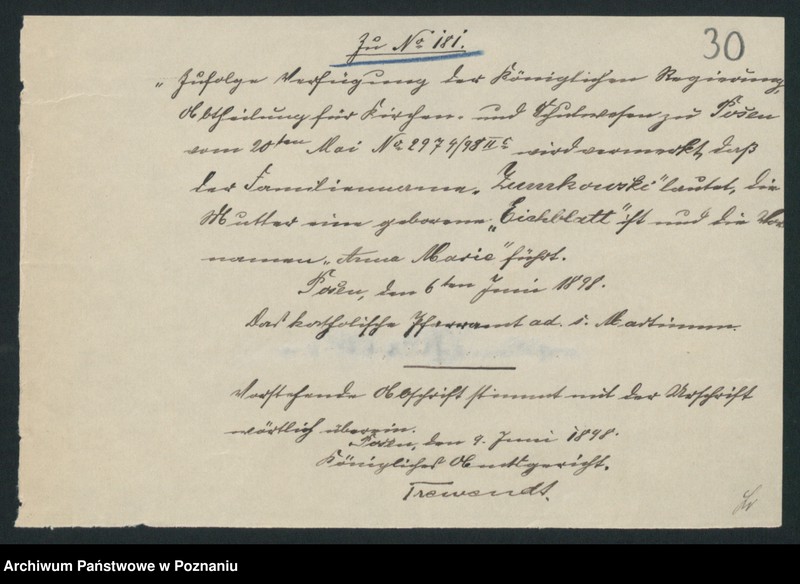 30
Zu No 181.
"Zufolge Verfügung der Königlichen Regierung,
Abtheilung für Kirchen- und Schulwesen zu Posen
vom 20ten Mai No 2974/98 IIc wird vermerkt, daß
der Familienname „Zumkowski" lautet, die
Mutter eine geborene „Eichblatt" ist und die Vor-
namen „Anna Marie" führt.
Posen, den 6ten Juni 1898.
Das katholische Pfarramt ad. s. Martinum.
Vorstehende Abschrift stimmt mit der Urschrift
wörtlich überein.
Posen, den 9. Juni 1898.
Königliches Amtsgericht.
Trewendt.
Archiwum Państwowe w Poznaniu